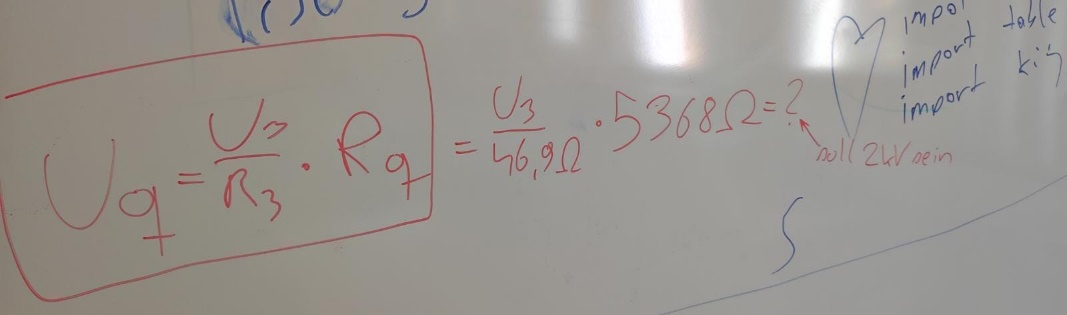 U_q = U_3/R_3 · R_q = U_3/46,9Ω · 5368Ω = ?
soll 2kV sein
import
import table
import
S